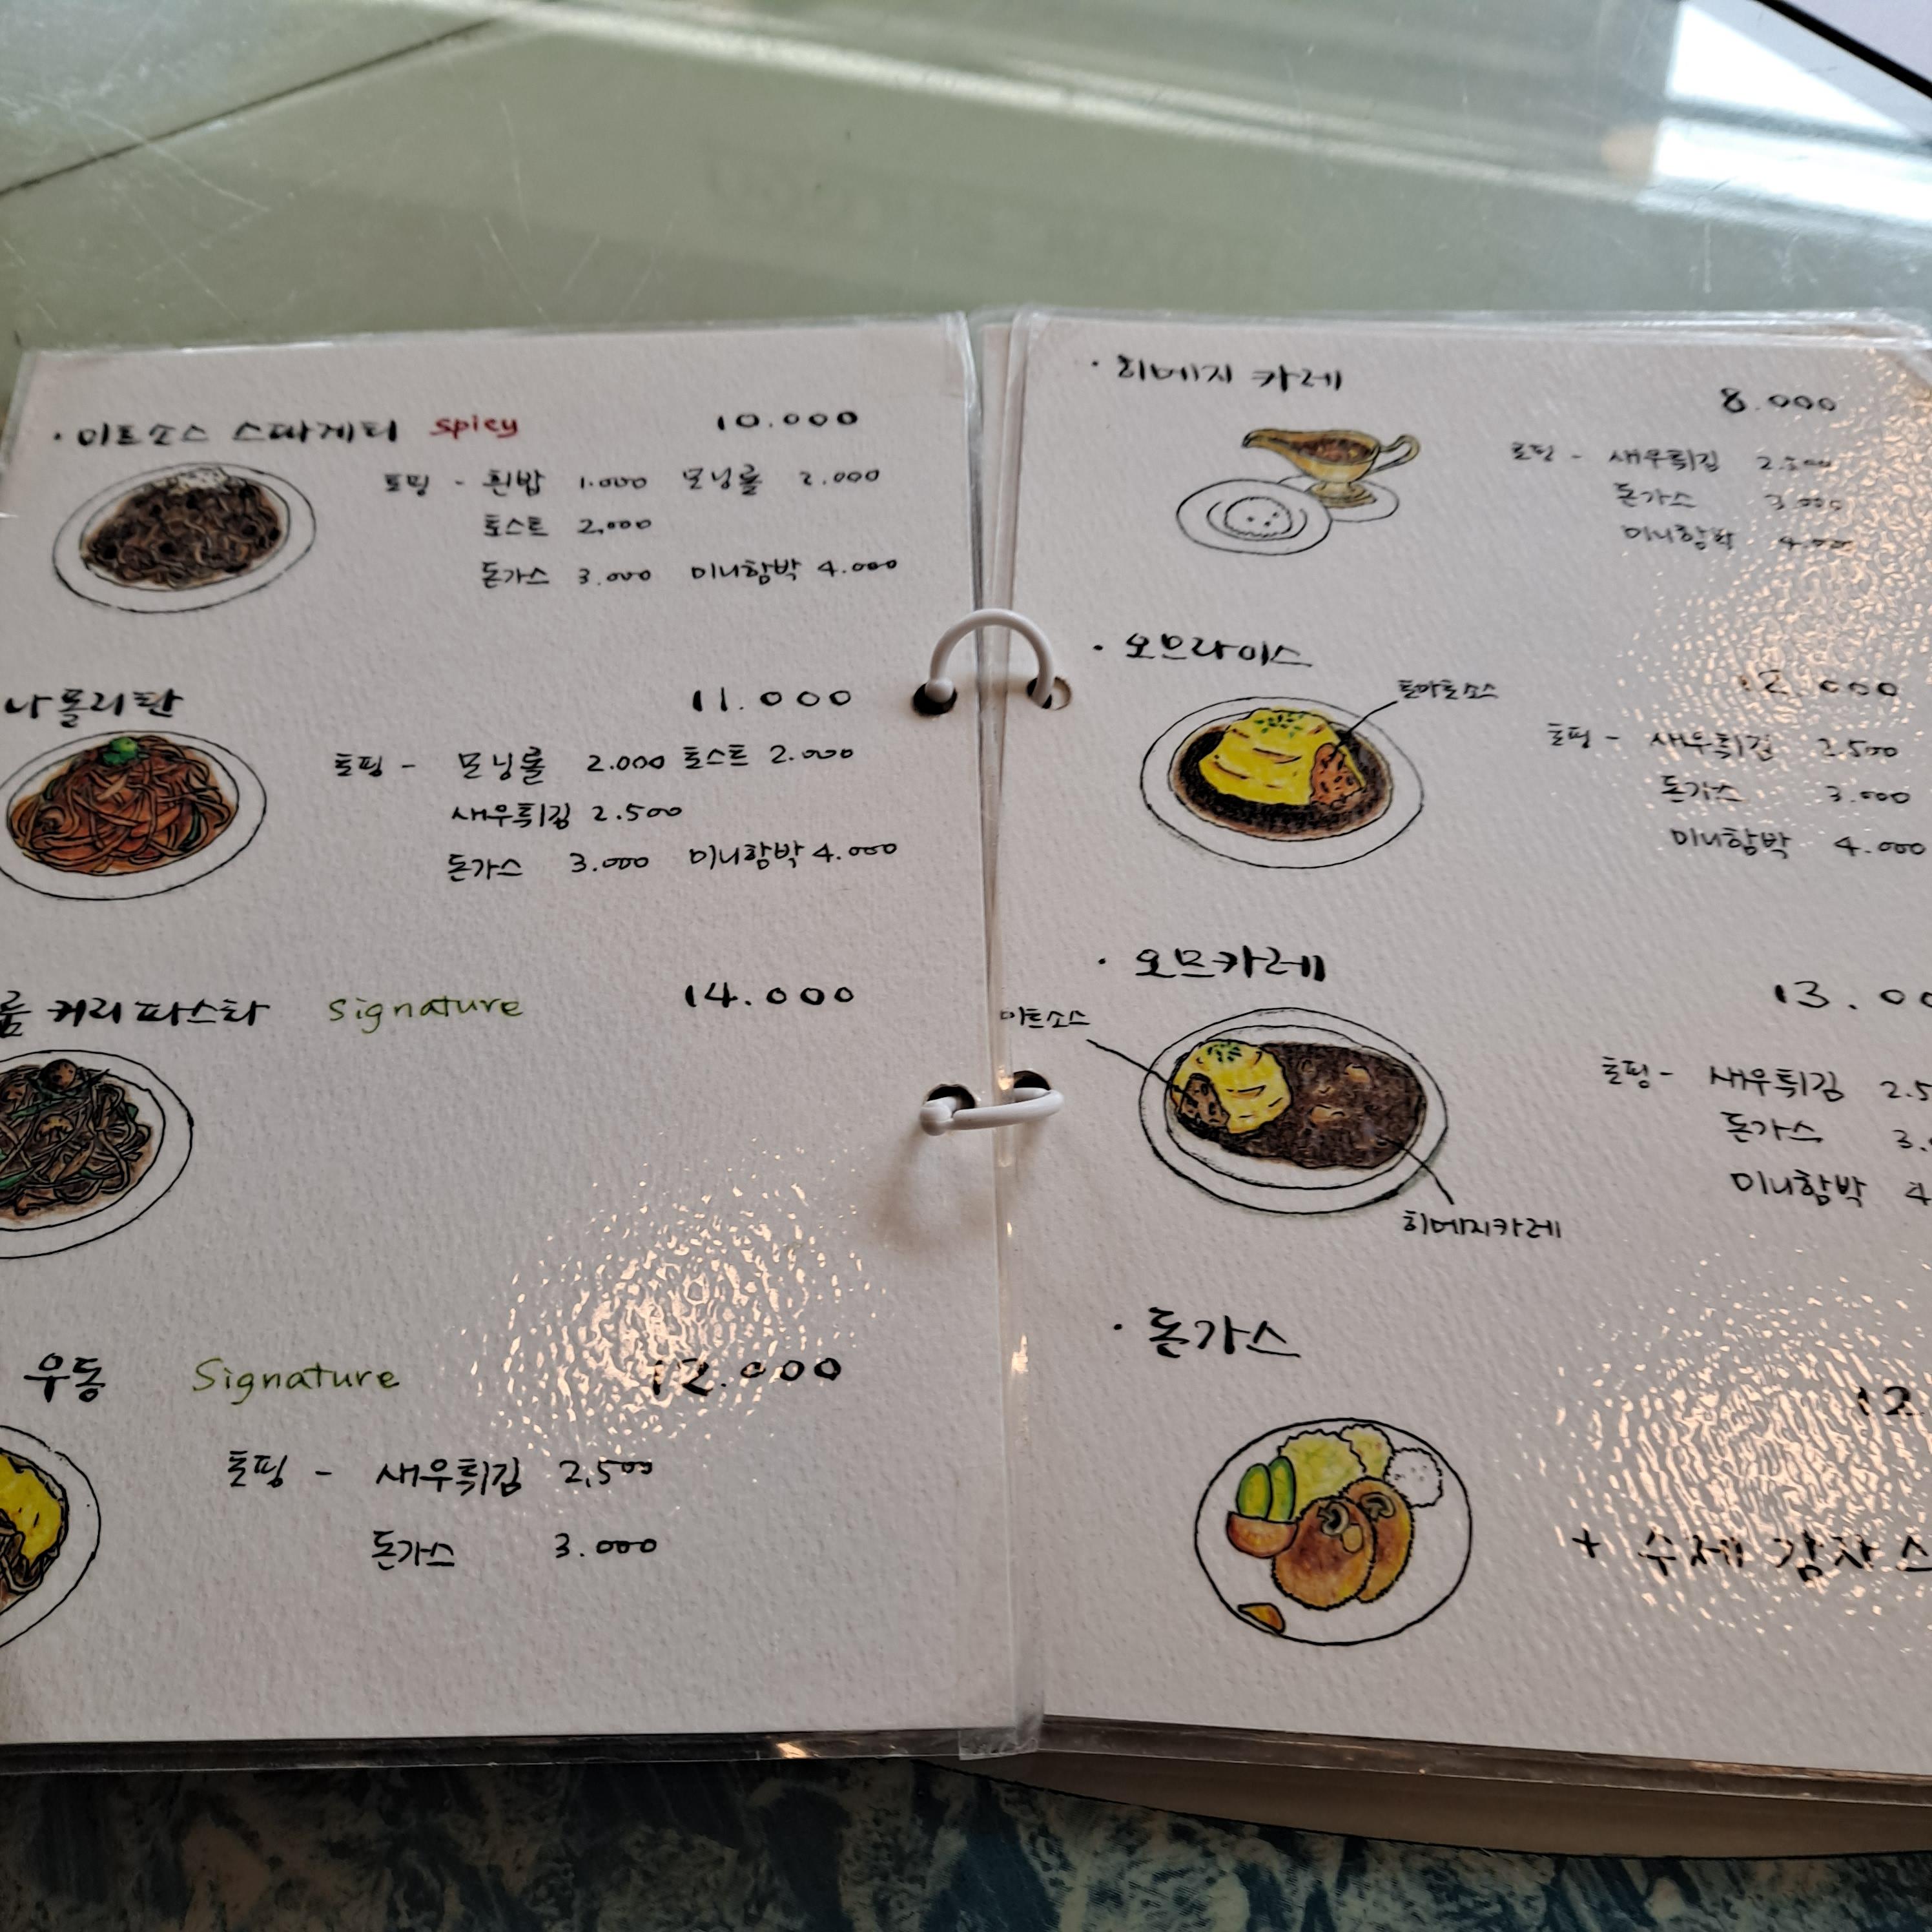 · 미트소스 스파게티 spicy 10.000
토핑 - 흰밥 1.000 모닝롤 2.000
토스트 2,000
돈가스 3.000 미니함박 4.000
나폴리탄 11.000
토핑 - 모닝롤 2.000 토스트 2.000
새우튀김 2.500
돈가스 3.000 미니함박 4.000
룸 커리 파스타 signature 14.000
우동 Signature 12.000
토핑 - 새우튀김 2,500
돈가스 3.000
· 히메지 카레 8.000
토핑 - 새우튀김 2.500
돈가스 3.000
미니함박 4.000
· 오므라이스
토마토소스
토핑 - 새우튀김 2.500
돈가스 3.000
미니함박 4.000
· 오므카레 13.00
미트소스
토핑 - 새우튀김 2.5
돈가스 3.
미니함박 4
히메지카레
· 돈가스 12.
+ 수제 감자